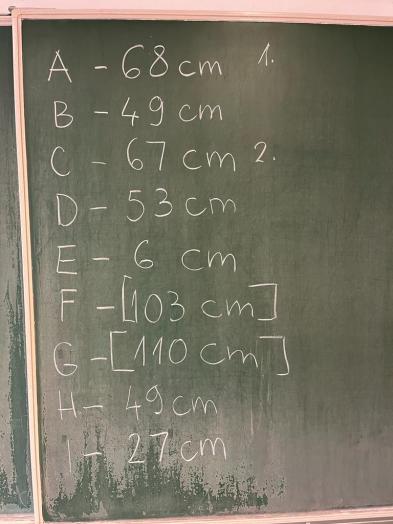 A - 68 cm 1.
B - 49 cm
C - 67 cm 2.
D - 53 cm
E - 6 cm
F - [103 cm]
G - [110 cm]
H - 49 cm
I - 27 cm